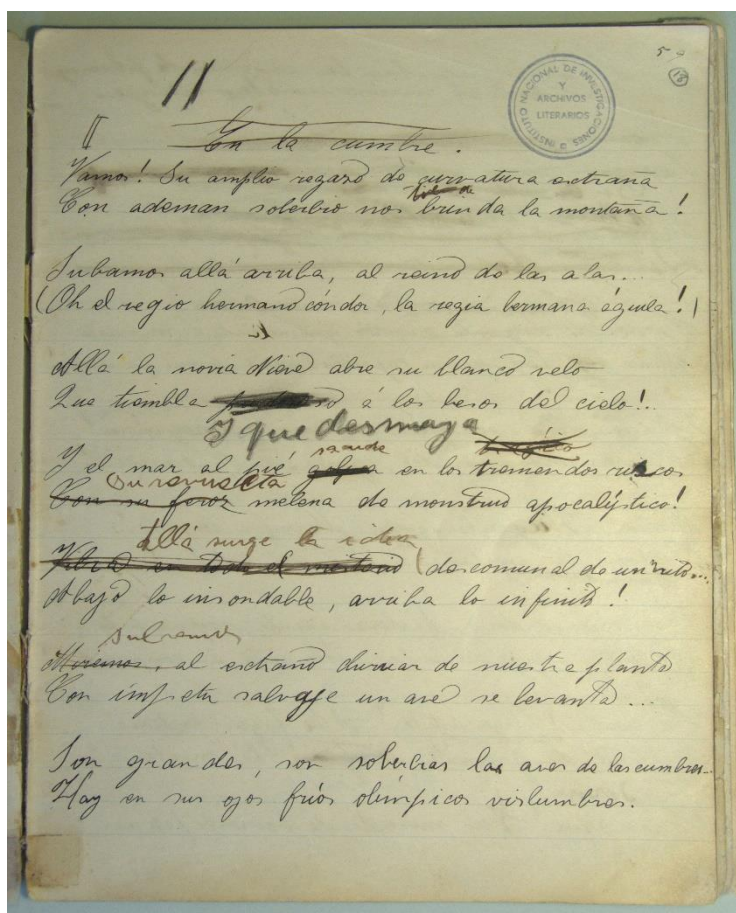 5 9
18
INSTITUTO NACIONAL DE INVESTIGACIONES
Y
ARCHIVOS
LITERARIOS
11
En la cumbre.
Vamos! Su amplio regazo de curvatura extraña
Con ademan soberbio nos brinda la montaña!
Subamos allá arriba, al reino de las alas...
(Oh el regio hermano cóndor, la regia hermana águila!)
Allá la novia Nieve abre su blanco velo
Que tiembla á los besos del cielo!..
Y que desmaya
sacude trágicos
Y el mar al pié golpea en los tremendos riscos
Su revuelta
Con su feroz melena de monstruo apocalíptico!
Allá surge la idea
Vibra en todo el (descomunal de un mito...
Abajo lo insondable, arriba lo infinito!
Subamos
Miremos, al extraño de nuestra planta
Con ímpetu salvaje un ave se levanta...
Son grandes, son soberbias las aves de las cumbres..
Hay en sus ojos fríos olímpicos vislumbres.